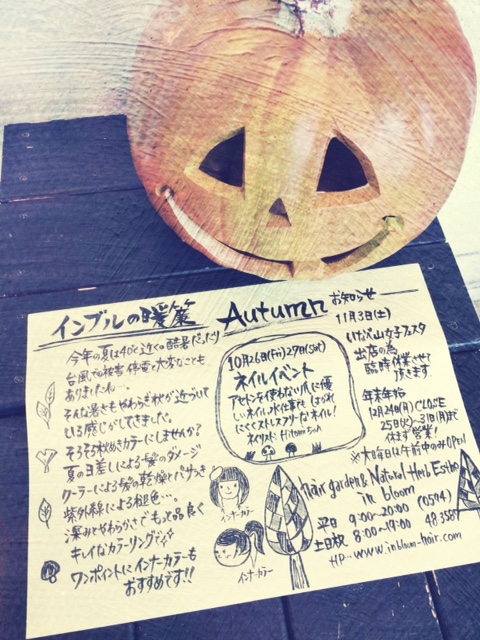 インブルの暖簾
Autumn お知らせ
今年の夏は40℃近くの酷暑だったり
台風での被害停電と大変なことも
ありましたね…。
そんな暑さもやわらぎ秋が近づいて
いる感じがしてきました。
そろそろ秋めきカラーにしませんか？
夏の日差しによる髪のダメージ
クーラーによる髪の乾燥とパサつき
紫外線による褪色…。
深みとやわらかさでもって品良く
キレイなカラーリングで
ワンポイントにインナーカラーも
おすすめです!!
10月26日(Fri) 27日(Sat)
ネイルイベント
アセトンを使わない爪に優
しいネイル水仕事でも はがれ
にくくストレスフリーなネイル！
ネイリスト Hitomiさん
インナーカラー
インナーカラー
11月3日(土)
いなべ山女子フェスタ
出店の為
臨時休業させて
頂きます
年末年始
12月24日(月) CLOSE
25日(火)〜31日(月)まで
休まず営業！
※大晦日は午前中のみOPEN
hair garden & Natural Herb Esthe
in bloom
平日 9:00-20:00 (0594)
土日祝 8:00-19:00 48-3587
HP-www.inbloom-hair.com